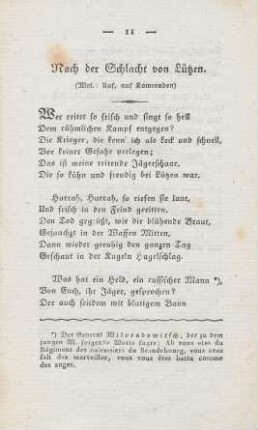 — 11 —
Nach der Schlacht von Lützen.
(Mel.: Auf, auf Kameraden)
Wer reitet so frisch und singt so hell
Dem rühmlichen Kampf entgegen?
Die Krieger, die kenn' ich als keck und schnell,
Vor keiner Gefahr verlegen;
Das ist meine reitende Jägerschaar,
Die so kühn und freudig bei Lützen war.
Hurrah, Hurrah, so riefen sie laut,
Und frisch in den Feind geritten,
Den Tod gegrüßt, wie die blühende Braut,
Gejauchzt in der Waffen Mitten,
Dann wieder geruhig den ganzen Tag
Geschaut in der Kugeln Hagelschlag.
Was hat ein Held, ein russischer Mann *),
Von Euch, ihr Jäger, gesprochen?
Der auch seitdem mit blutigem Bann
*) Der General Miloradowitsch, der zu dem
jungen M. folgende Worte sagte: Ah vous etes du
Regiment des cuirassiers du Brandebourg, vous avez
fait des merveilles, vous vous etes battu comme
des anges.